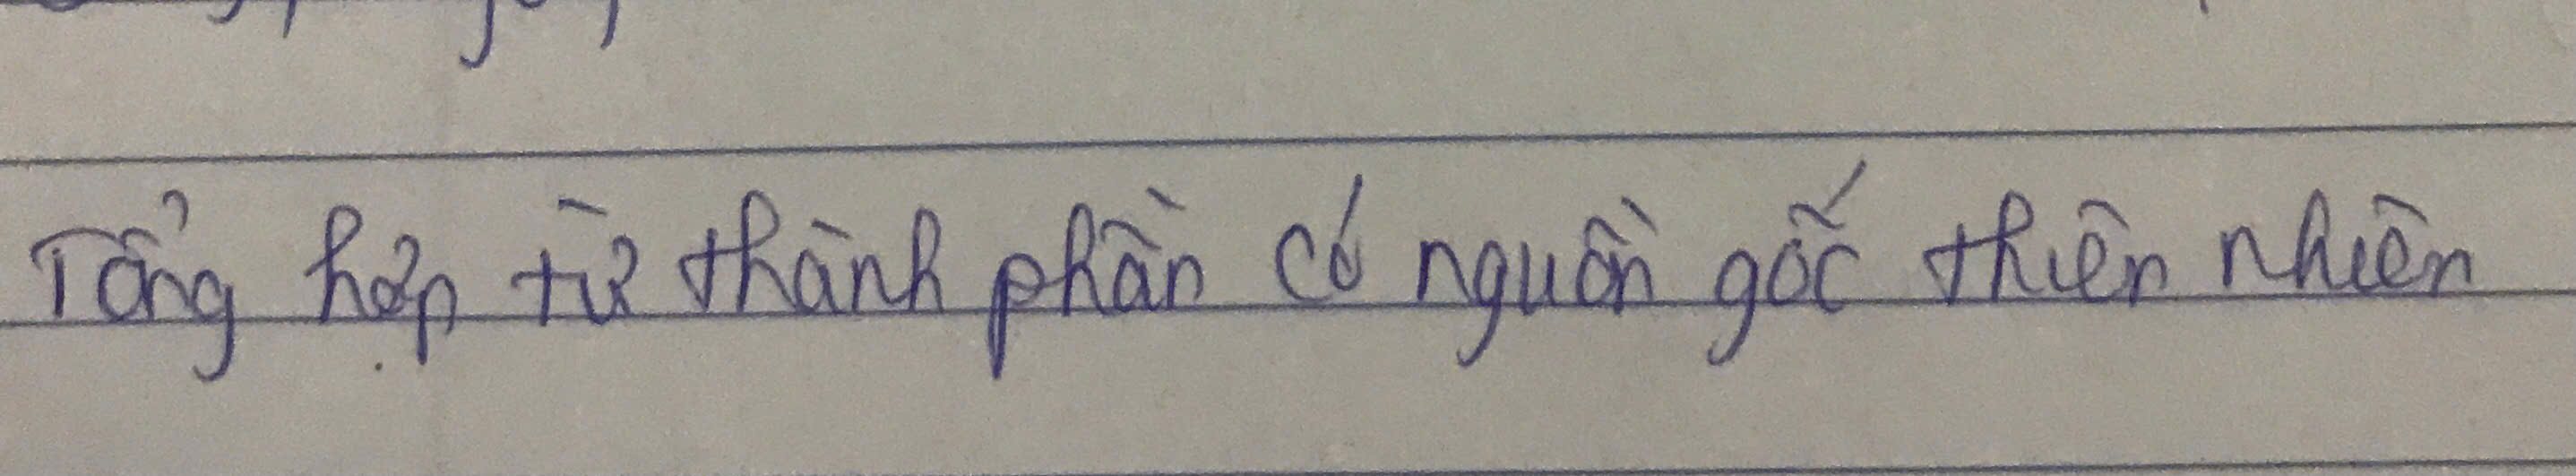 Tổng hợp từ thành phần có nguồn gốc thiên nhiên